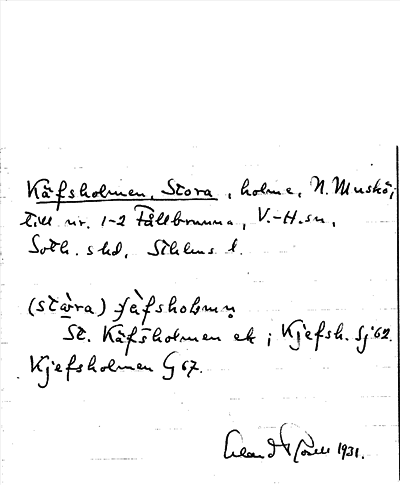 Käfsholmen, Stora, holme, N. Muskö;
till nr. 1-2 Fållbrunna, V.-H. sn,
Soth. shd, Sthlms l.
(stɷ̀ra) ɟä̀fsholmn̥
St. Käfsholmen ek; Kjefsh. Sj 62.
Kjefsholmen G 67.
1931.